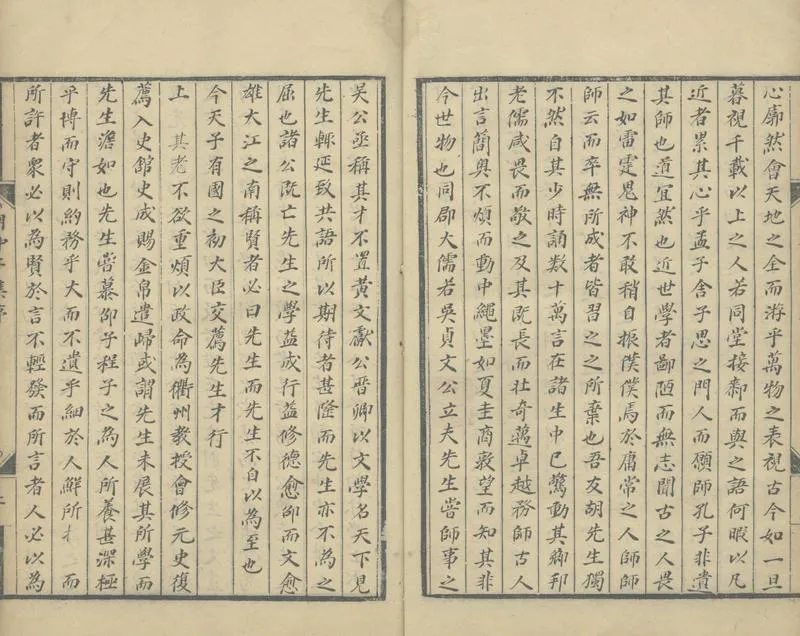 心廓然會天地之全而游乎萬物之表視古今如一旦
暮視千載以上之人若同堂接鄰而與之語何暇以凡
近者累其心乎孟子舍子思之門人而願師孔子非遺
其師也道宜然也近世學者鄙陋而無志聞古之人畏
之如雷霆鬼神不敢稍自振僕僕焉於庸常之人師師
師云而卒無所成者皆習之之所棄也吾友胡先生獨
不然自其少時誦數十萬言在諸生中已驚動其鄉邦
老儒咸畏而敬之及其既長而壯奇邁卓越務師古人
出言簡奧不煩而動中繩墨如夏圭商敦望而知其非
今世物也同郡大儒若吳貞文公立夫先生嘗師事之
吳公亟稱其才不置黃文獻公晉卿以文學名天下見
先生輒延致共語所以期待者甚隆而先生亦不為之
屈也諸公既亡先生之學益成行益修德愈卲而文愈
雄大江之南稱賢者必曰先生而先生不自以為至也
今天子有國之初大臣交薦先生才行
上 其老不欲重煩以政命為衢州教授會修元史復
薦入史館史成賜金帛遣歸或謂先生未展其所學而
先生澹如也先生嘗慕邵子程子之為人所養甚深極
乎博而守則約務乎大而不遺乎細於人鮮所 而
所許者衆必以為賢於言不輕發而所言者人必以為